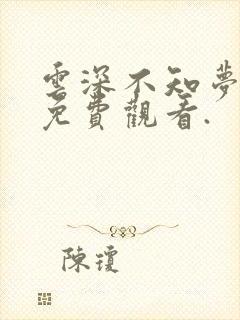 雲深不知夢
免費觀看.
陳瓊